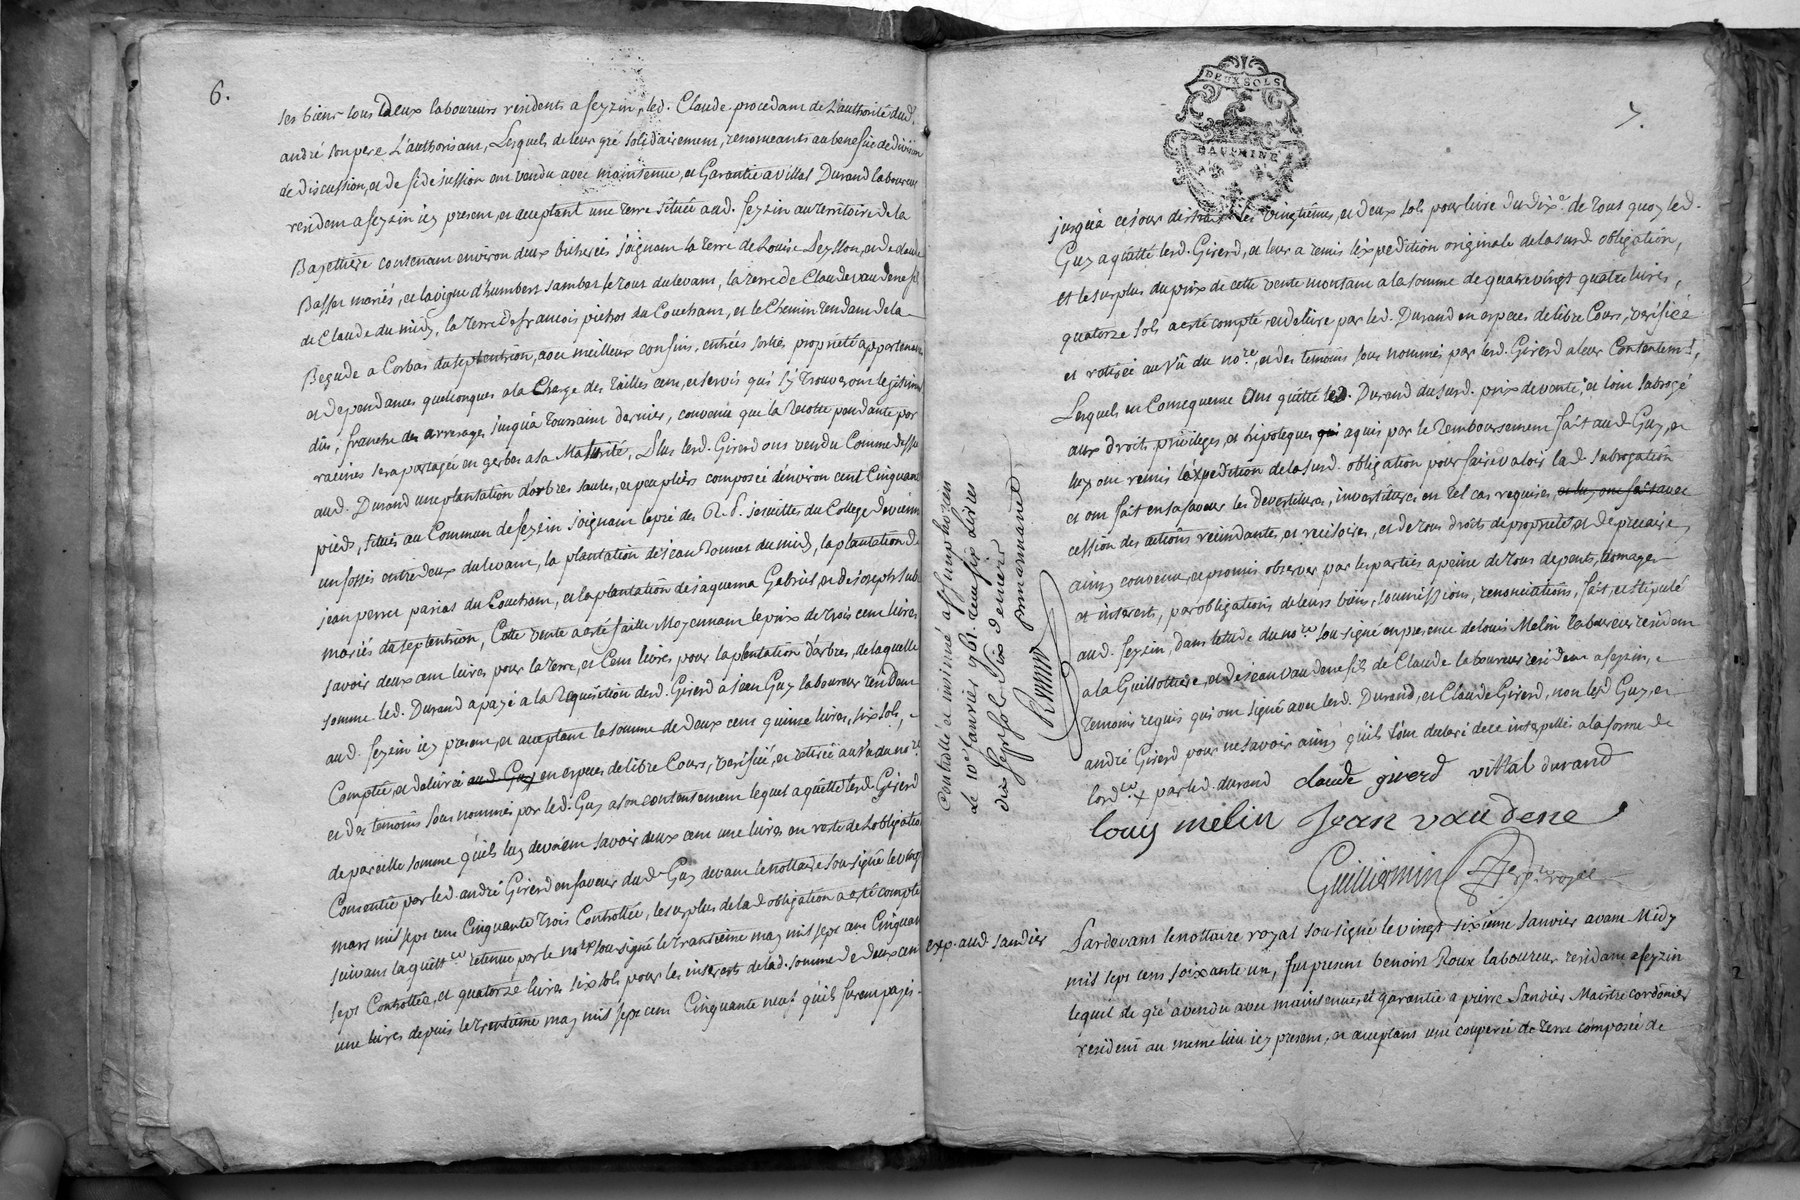 6.
ses biens tous deux laboureurs residents a feyzin, led. Claude procedant de L'authorité dud.
andré son pere L'authorisant, Lesquels de leur gré solidairement, renonceants au benefice de division
de discussion, et de fidejussion ont vendu avec maintenue, et Garantie a vittal Durand laboureur
resident a feyzin icy present, et acceptant une terre située aud. feyzin au territoire de la
Bayettiere contenant environ deux bicherées joignant la terre de Louise Leysson, et de claude
Basset mariés, et la vigne d'humbert Sambet le tout du levant, la terre de Claude vaudene fils
de Claude du midy, la terre de francois pichot du Couchant, et le Chemin tendant de la
Begude a Corbas du septentrion, avec meilleurs confins, entrées sorties propriété appartenances
et dependances quelconques a la Charge des tailles cens, et servis qui s'y trouveront legitimement
dûs; franche des arrerages jusqu'a toussaint dernier, convenu que la recolte pendante par
racines sera partagée en gerbes a sa Maturité, Plus lesd. Girerd ont vendu Comme dessus
aud. Durand une plantation d'arbres saules, et peupliers composée d'environ cent Cinquante
pieds, situés au Commun de feyzin joignant le pré des R. P. jesuittes du College de vienne
un fossé entre deux du levant, la plantation de jean Bonnet du midy, la plantation de
jean pierre parias du Couchant, et la plantation de jaquema Gabriel, et de joseph
mariés du septentrion, Cette vente a eté faitte Moyennant le prix de trois cent livres
savoir deux cent livres pour la terre, et Cent livres pour la plantation d'arbres, de laquelle
somme led. Durand a payé a la Requisition desd. Girerd a jean Guy laboureur resident
aud. feyzin icy present, et acceptant la somme de deux cent quinse livres, six sols,
Comptée, et delivrée aud. Guy en especes de libre Cours, verifiée, et retirée au vû du no.re
et des temoins sous nommés par led. Guy a son contentement lequel a quitté lesd. Girerd
de pareille somme qu'ils luy devoient savoir deux cent une livres en reste de Lobligation
Consentie par led. andré Girerd en faveur dud. Guy devant le nottaire soussigné le vingt
mars mil sept cens Cinquante trois Controllée, le surplus de lad. obligation a eté compté
suivant la quitt.ce retenue par le no.re soussigné le trantieme may mil sept cens Cinquante
sept Controllée, et quatorze livres six sols pour les interests de lad. somme de deux cent
une livres depuis le trentieme may mil sept cent Cinquante neuf qu'ils furent payés
7.
DEUX SOLS
DAUPHINE
jusqu'a ce jour distraits les vingtiemes, et deux sols pour livre du dix.e de tous quoy led.
Guy a quitté lesd. Girerd, et leur a remis l'expedition originale de la susd. obligation,
et le surplus du prix de cette vente montant a la somme de quatre vingt quatre livres,
quatorze sols a eté compté, et delivré par led. Durand en especes de libre Cours, verifiée
et retirée au vû du no.re, et des temoins sous nommés par lesd. Girerd a leur Contentem.t,
Lesquels en Consequence Ont quitté led. Durand du susd. prix de vente, et l'ont subrogé
aux droits privileges, et hipoteques aquis par le remboursement fait aud. Guy, et
luy ont remis l'expedition de la susd. obligation pour faire valoir lad. subrogation
et ont fait en sa faveur les devestitures, investitures en tel cas requises, et luy ont fait avec
cession des actions rescindantes, et rescisoires, et de tous droits de proprieté, et de precaire
ainsy convenu, et promis observer par les parties a peine de tous depents, domages
et interest, par obligations de leurs biens, soumissions, renonciations, fait, et stipulé
aud. feyzin, dans letude du no.re soussigné en presence de louis Melin laboureur resident
a la Guillottiere, et de jean vaudene fils de Claude laboureur resident a feyzin,
temoins requis qui ont signé avec lesd. Durand, et Claude Girerd, non lesd. Guy, et
andré Girerd pour ne savoir ainsy qu'ils l'ont declaré de ce interpellé a la forme de
lord.ce x par led. durand claude girerd vittal durand
louy melin Jean vaudene
Guilliermin
Controllé et insinué a st simphorien
le 10e janvier 1761. reçu six livres
dix sept sols six deniers
exp. aud. sandier
Pardevant le nottaire royal soussigné le vingt sixieme Janvier avant Midy
mil sept cens soixante un, fut present benoit Roux laboureur resident a feyzin
lequel de gré a vendu avec maintenue, et garantie a pierre Sandier Maitre cordonier
resident au meme lieu icy present, et acceptant une couperée de terre composée de